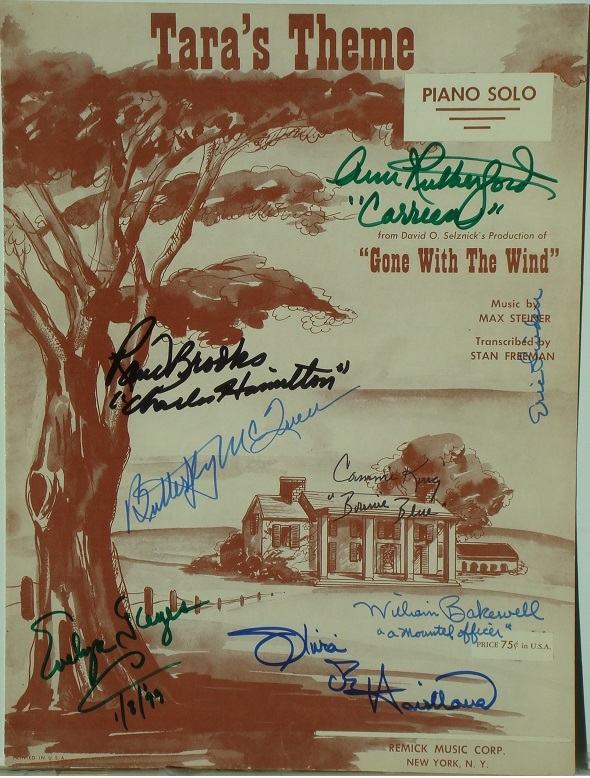 Tara's Theme
PIANO SOLO
Ann Rutherford
"Carreen"
from David O. Selznick's Production of
"Gone With The Wind"
Music by
MAX STEINER
Transcribed by
STAN FREEMAN
Rand Brooks
"Charles Hamilton"
Butterfly McQueen
Cammie King
"Bonnie Blue"
William Bakewell
"a Mounted officer"
PRICE 75¢ in U.S.A.
Evelyn Keyes
Olivia
De Havilland
REMICK MUSIC CORP.
NEW YORK, N. Y.
PRINTED IN U.S.A.